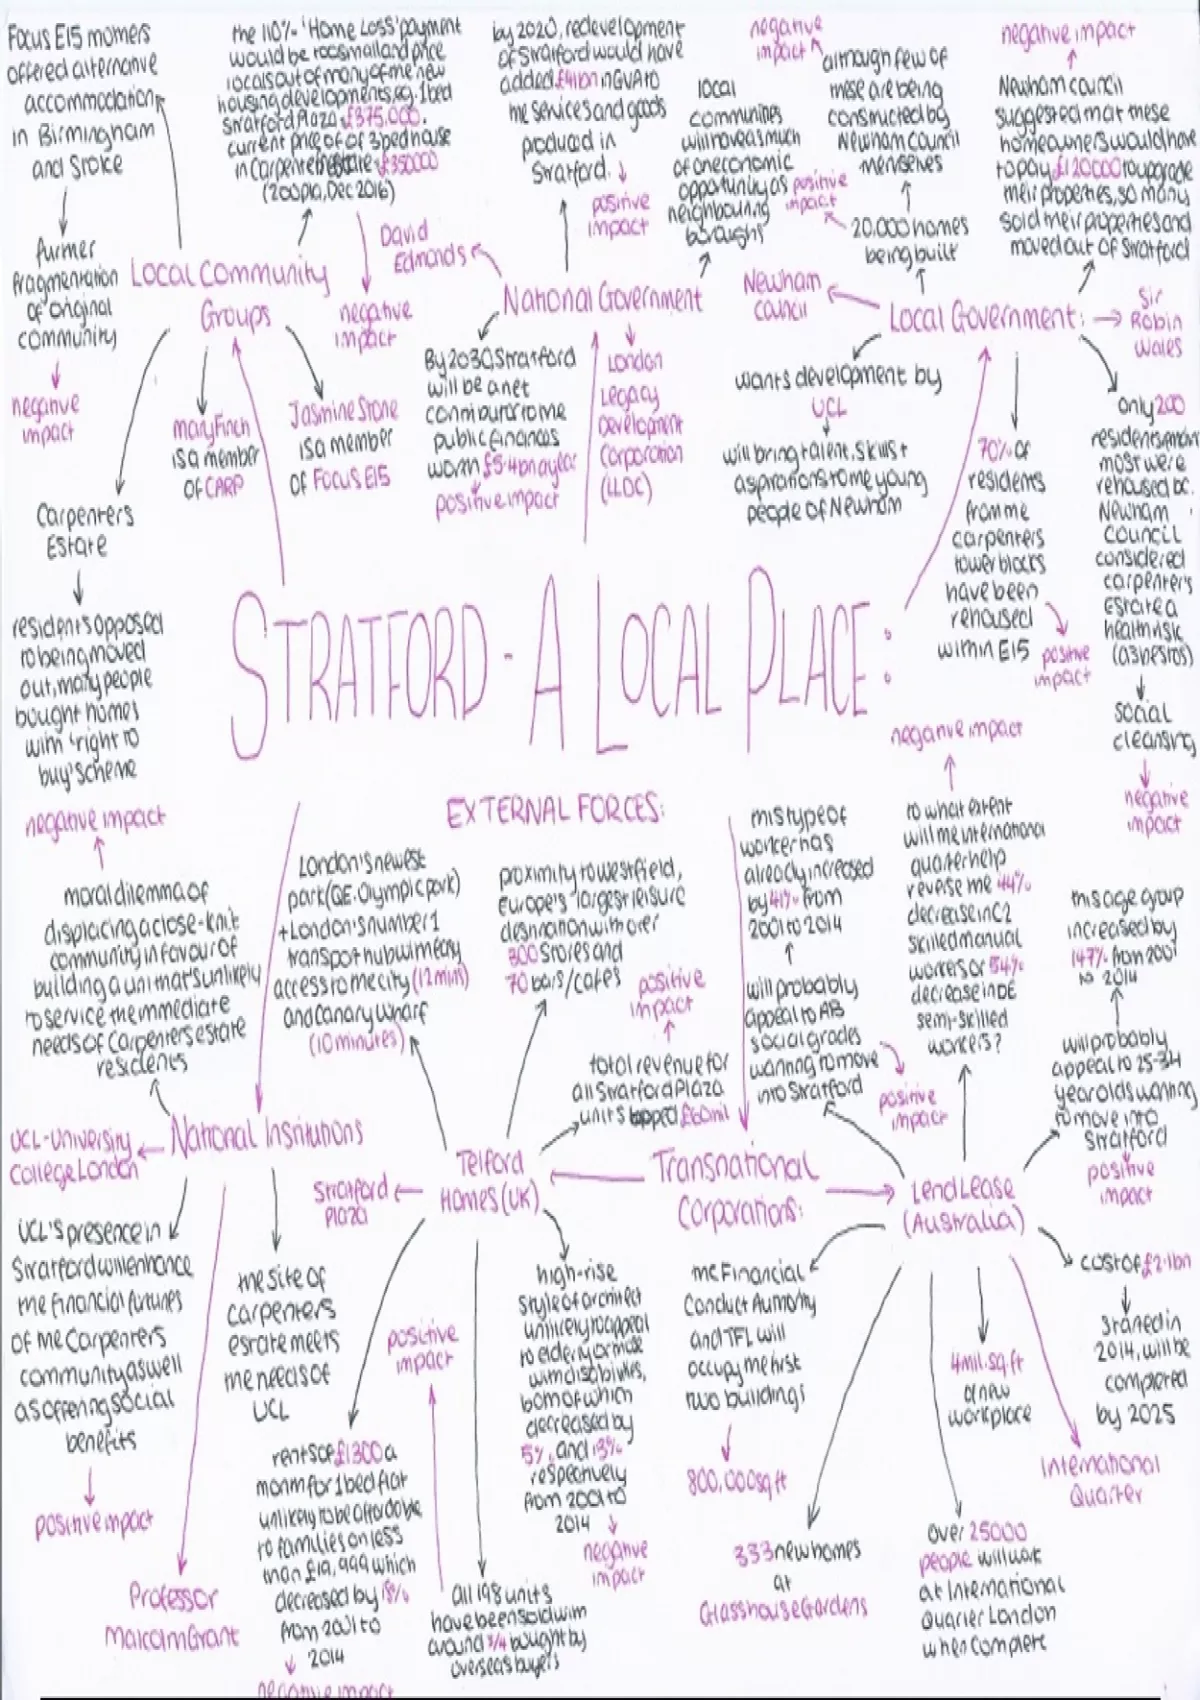 Focus E15 mothers
offered alternative
accommodation
in Birmingham
and Stoke
further
fragmentation
of original
community
negative
impact
the 110% 'Home Loss' payment
would be too small and price
locals out of many of the new
housing developments, eg. 1 bed
Stratford Plaza £375,000.
current price of a 3 bed house
in Carpenters estate £350000
(Zoopla, Dec 2016)
negative
impact
Local Community
Groups
Mary Finch
is a member
of CARP
Jasmine Stone
is a member
of Focus E15
Carpenters
Estate
residents opposed
to being moved
out, many people
bought homes
with 'right to
buy' scheme
by 2020, redevelopment
of Stratford would have
added £41bn in GVA to
the services and goods
produced in
Stratford.
positive
impact
David
Edmonds
National Government
local
communities
will have as much
of an economic
opportunity as
neighbouring
boroughs
positive
impact
By 2030, Stratford
will be a net
contributor to the
public finances
worth £5.4bn a year
positive impact
London
Legacy
Development
Corporation
(LLDC)
negative
impact
although few of
these are being
constructed by
Newham Council
themselves
20,000 homes
being built
Newham
Council
Local Government:
Sir
Robin
Wales
negative impact
Newham council
suggested that these
homeowners would have
to pay £120000 to upgrade
their properties, so many
sold their properties and
moved out of Stratford
wants development by
UCL
will bring talent, skills +
aspirations to the young
people of Newham
70% of
residents
from the
carpenters
tower blocks
have been
rehoused
within E15
positive
impact
only 200
residents remain
most were
rehoused bc.
Newham
Council
considered
carpenter's
Estate a
health risk
(asbestos)
social
cleansing
negative
impact
STRATFORD - A LOCAL PLACE:
EXTERNAL FORCES:
negative impact
moral dilemma of
displacing a close-knit
community in favour of
building a uni that's unlikely
to service the immediate
needs of Carpenters estate
residents
National Institutions
UCL - University
College London
UCL's presence in
Stratford will enhance
the financial futures
of the Carpenters
community as well
as offering social
benefits
positive impact
Professor
Malcolm Grant
the site of
carpenters
estate meets
the needs of
UCL
London's newest
park (QE. Olympic park)
+ London's number 1
transport hub with easy
access to the city (12 mins)
and Canary Wharf
(10 minutes)
proximity to westfield,
Europe's largest leisure
destination with over
300 Stores and
70 bars/cafes
positive
impact
total revenue for
all Stratford Plaza
units topped £60mil
Telford
Homes (UK)
Stratford
Plaza
rents of £1300 a
month for 1 bed flat
unlikely to be affordable
to families on less
than £19,999 which
decreased by 18%
from 2001 to
2014
negative impact
positive
impact
All 198 units
have been sold with
around 3/4 bought by
overseas buyers
high-rise
style of architect
unlikely to appeal
to elderly or those
with disabilities,
both of which
decreased by
5% and 13%
respectively
from 2001 to
2014
negative
impact
Transnational
Corporations:
this type of
worker has
already increased
by 41% from
2001 to 2014
will probably
appeal to AB
social grades
wanting to move
into Stratford
positive
impact
negative impact
to what extent
will the international
quarter help
reverse the 44%
decrease in C2
skilled manual
workers or 54%
decrease in DE
semi-skilled
workers?
this age group
increased by
147% from 2001
to 2014
will probably
appeal to 25-34
year olds wanting
to move into
Stratford
positive
impact
Lend Lease
(Australia)
the Financial
Conduct Authority
and TFL will
occupy the first
two buildings
800,000 sq ft
333 new homes
at
Glasshouse Gardens
4mil. sq ft
of new
workplace
over 25000
people will work
at International
Quarter London
when complete
cost of £2.1bn
Started in
2014, will be
completed
by 2025
International
Quarter